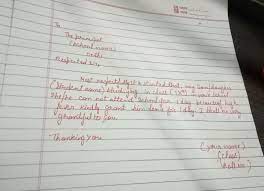 To
The principal
(school name)
Delhi
Respected Sir,
Most respectfully it is stated that, my Son/daughter
(student name) studying in class (
She/he can not attend school for 1 day because of high
fever kindly grant him leave for 1 day. I shall be very
grateful to you.
Thanking you
(your name)
(class)
(Roll no.)